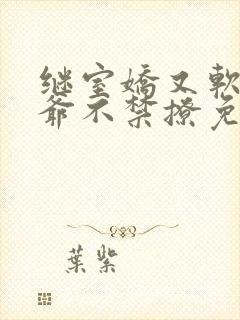 继室嬌又軟
爺不禁撩免
葉紫